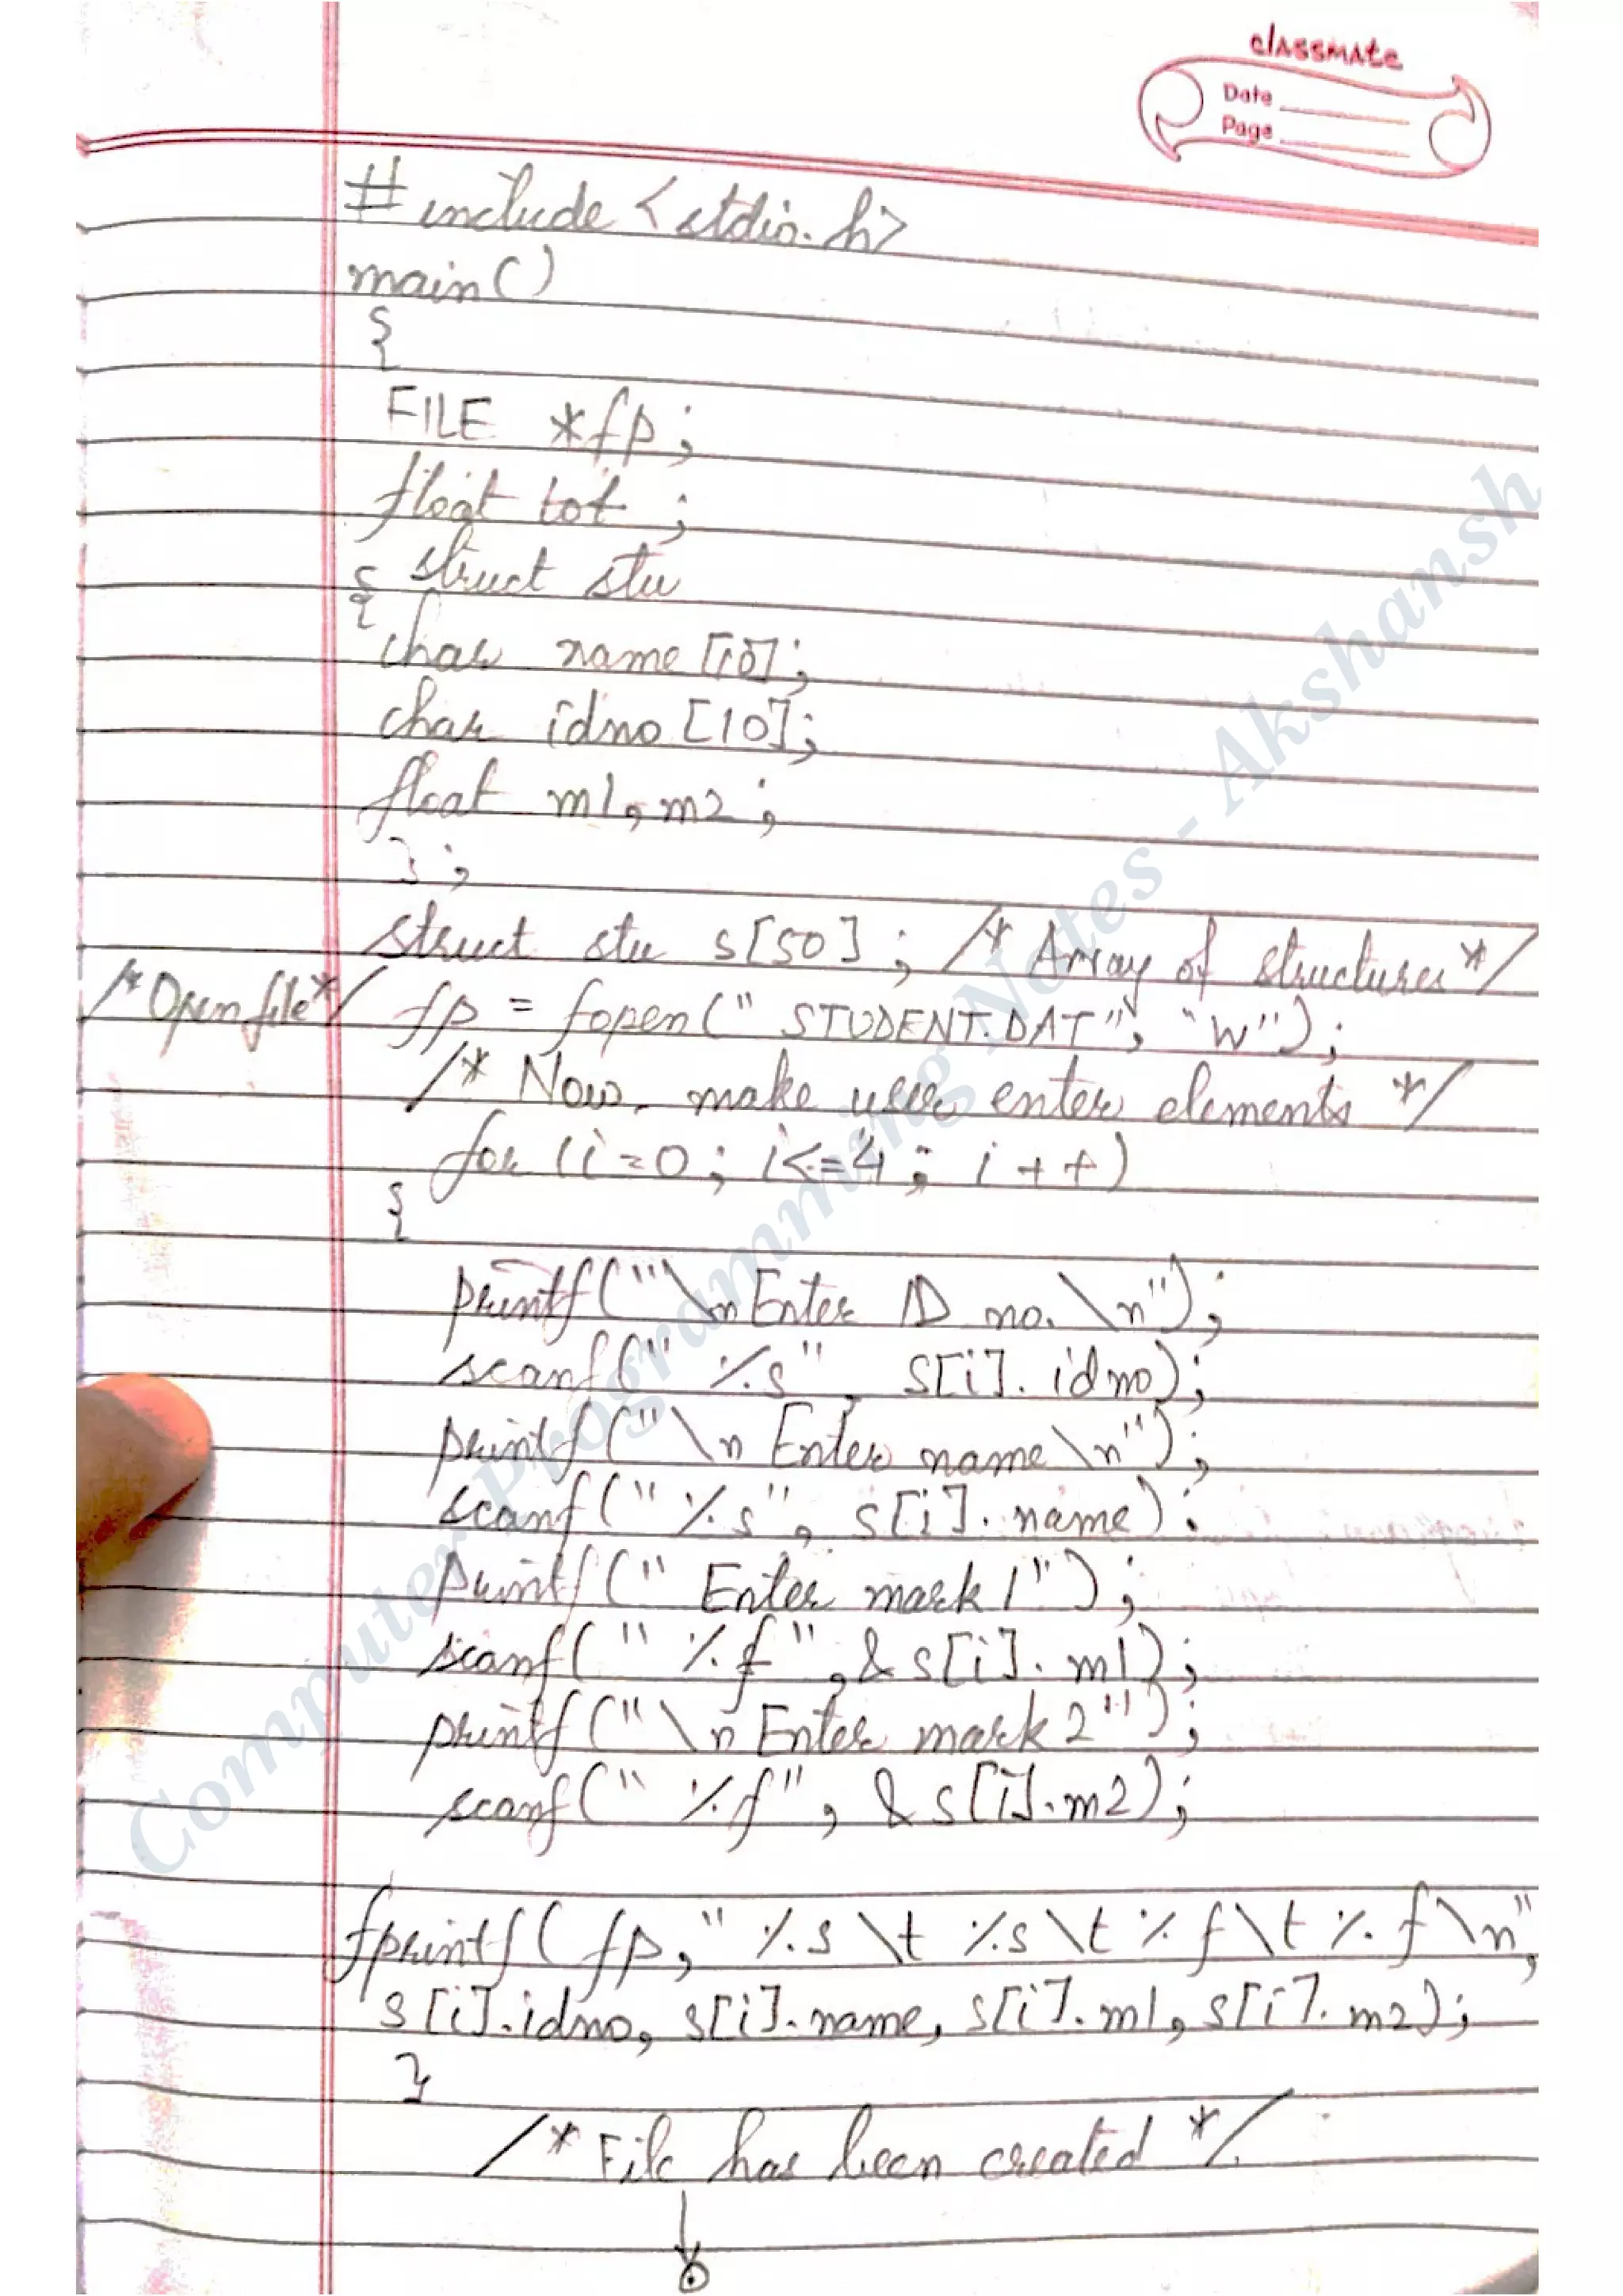 classmate
Date
Page
#include <stdio.h>
main()
{
FILE *fp;
float tot ;
struct stu
{
char name[10];
char idno[10];
float m1,m2;
};
struct stu s[50]; /* Array of structures */
/*Open file*/ fp = fopen("STUDENT.DAT", "w");
/* Now, make user enter elements */
for (i=0; i<=4; i++)
{
printf("\nEnter ID no.\n");
scanf("%s", s[i].idno);
printf("\n Enter name\n");
scanf("%s", s[i].name);
printf(" Enter mark1");
scanf("%f",&s[i].m1);
printf("\nEnter mark2");
scanf("%f", &s[i].m2);
fprintf(fp,"%s\t %s\t%f\t%f\n",
s[i].idno, s[i].name, s[i].m1, s[i].m2);
}
/* File has been created */
Computer Programming Notes - Akshansh